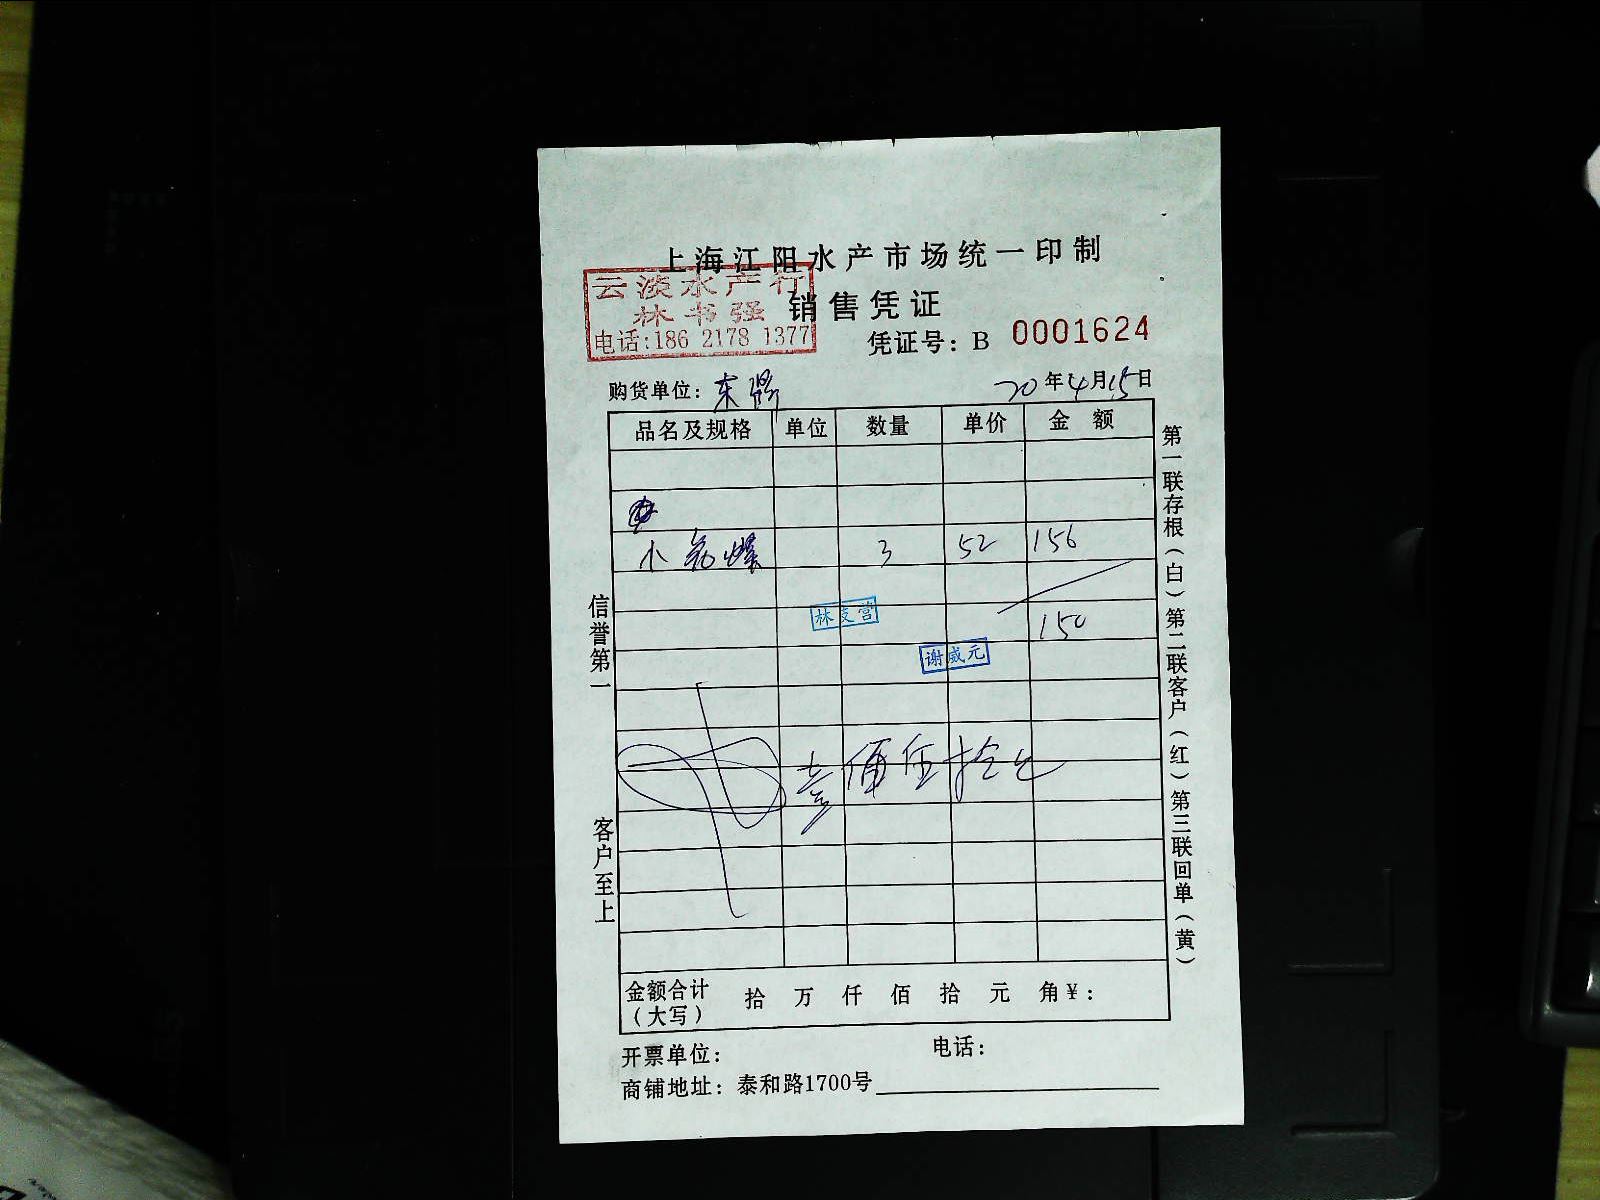 上海江阳水产市场统一印制
云淡水产行
林书强
电话:186 2178 1377
销售凭证
凭证号：B 0001624
购货单位：东
20年4月15日
品名及规格 单位 数量 单价 金额
小 3 52 156
林支营
150
谢威元
壹佰伍拾元
信誉第一
客户至上
第一联存根（白）第二联客户（红）第三联回单（黄）
金额合计（大写） 拾 万 仟 佰 拾 元 角¥：
开票单位： 电话：
商铺地址：泰和路1700号